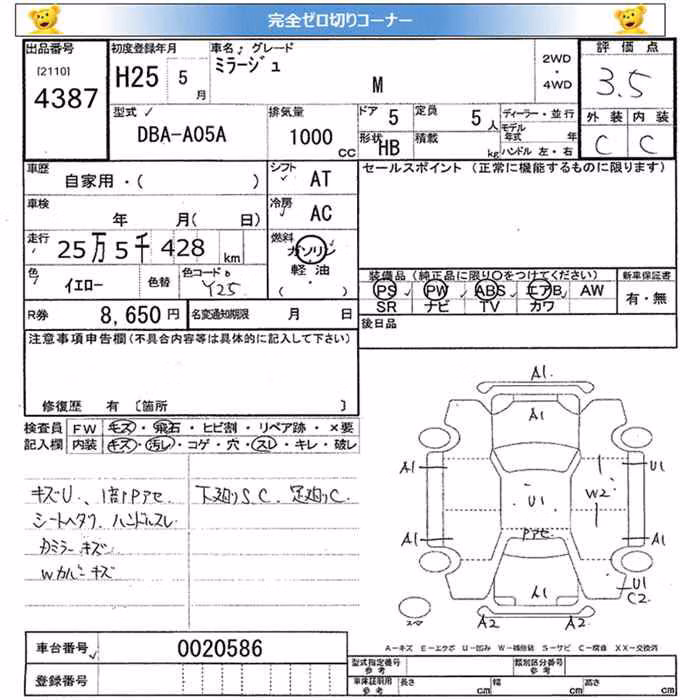 完全ゼロ切りコーナー
出品番号 初度登録年月 車名 グレード 2WD ・ 4WD 評価点
[2110] 4387 H25 5月 ミラージュ M 3.5
型式 DBA-A05A 排気量 1000 CC ドア 5 定員 5人 ディーラー・並行
形状 HB 積載 kg モデル年式 年 ハンドル 左・右
外装 内装
C C
車歴 自家用・( ) シフト AT セールスポイント (正常に機能するものに限ります)
車検 年 月( 日) 冷房 AC
走行 25万5千428 km 燃料 ガソリン 軽油 ( )
色 イエロー 色替 色コード Y25
装備品 (純正品に限り○をつけてください) 新車保証書
PS PW ABS エアB AW 有・無
SR ナビ TV カワ
R券 8,650円 名変通知期限 月 日 後日品
注意事項申告欄(不具合内容等は具体的に記入して下さい)
修復歴 有 〔箇所 〕
検査員 FW キズ・飛石・ヒビ割・リペア跡・×要
記入欄 内装 キズ・汚レ・コゲ・穴・スレ・キレ・破レ
キズU、1部Pアセ 下廻りS.C. 足廻りC.
シートヘタリ ハンドルスレ
Dミラーキズ
Wカバーキズ
A1.
A1
A1 U1
W2
U1
Pアセ
A1 A1
A1 U1
C2
スペア A2 A2
A-キズ E-エクボ U-凹み W-補修跡 S-サビ C-腐食 XX-交換済
車台番号 0020586
登録番号
型式指定番号 参考 類別区分番号 参考
車体証明用 参考 長さ cm 幅 cm 高さ cm